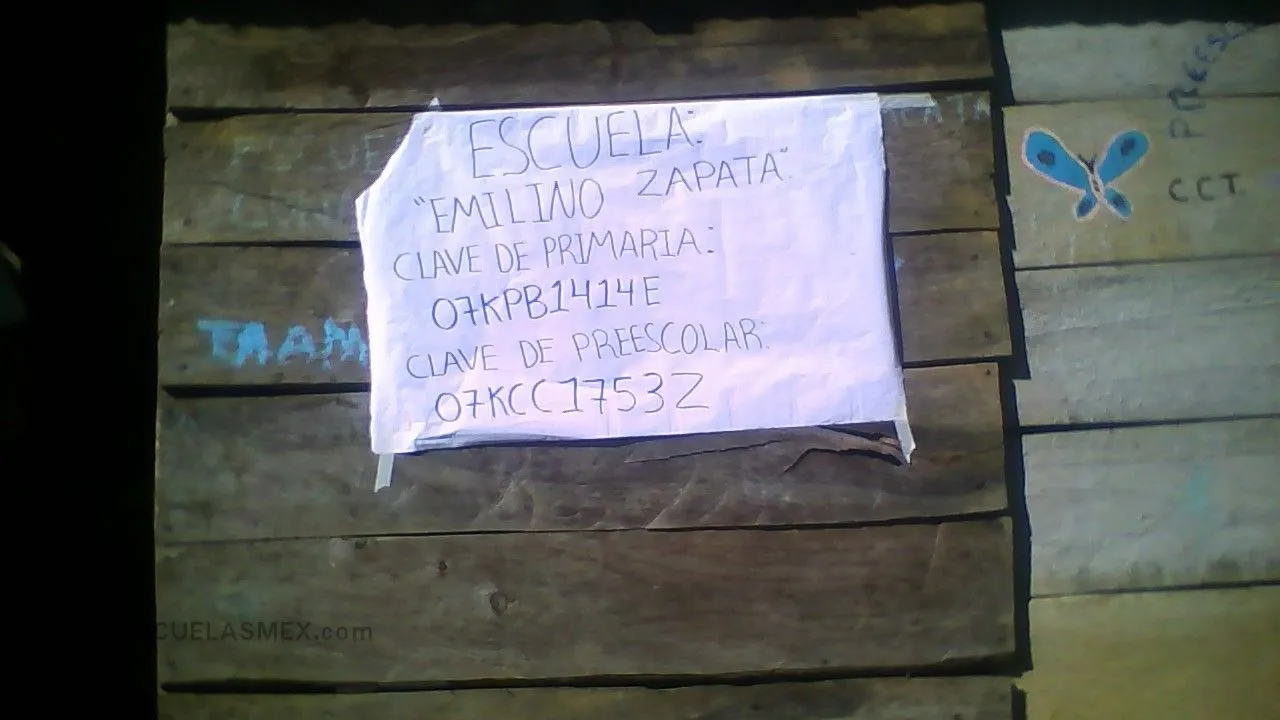 ESCUELA:
"EMILINO ZAPATA".
CLAVE DE PRIMARIA:
07KPB1414E
CLAVE DE PREESCOLAR:
07KCC1753Z
TRAM
CCT
CUELASMEX.com